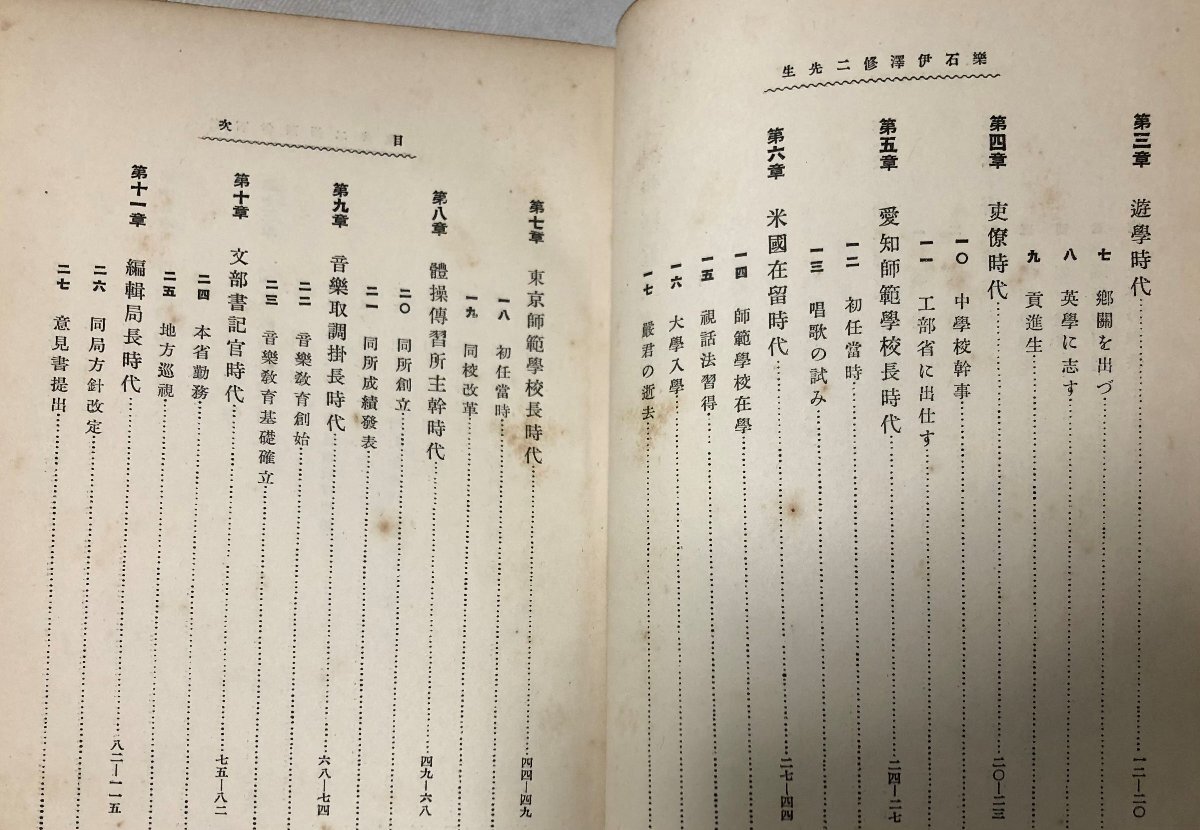 樂石伊澤修二先生
第三章 遊學時代……一二—二〇
七 鄕關を出づ
八 英學に志す
九 貢進生
第四章 吏僚時代……二〇—二三
一〇 中學校幹事
一一 工部省に出仕す
第五章 愛知師範學校長時代……二四—二七
一二 初任當時
一三 唱歌の試み
第六章 米國在留時代……二七—四四
一四 師範學校在學
一五 視話法習得
一六 大學入學
一七 嚴君の逝去
目次
第七章 東京師範學校長時代……四四—四九
一八 初任當時
一九 同校改革
第八章 體操傳習所主幹時代……四九—六八
二〇 同所創立
二一 同所成績發表
第九章 音樂取調掛長時代……六八—七四
二二 音樂教育創始
二三 音樂教育基礎確立
第十章 文部書記官時代……七五—八二
二四 本省勤務
二五 地方巡視
第十一章 編輯局長時代……八二—一一五
二六 同局方針改定
二七 意見書提出